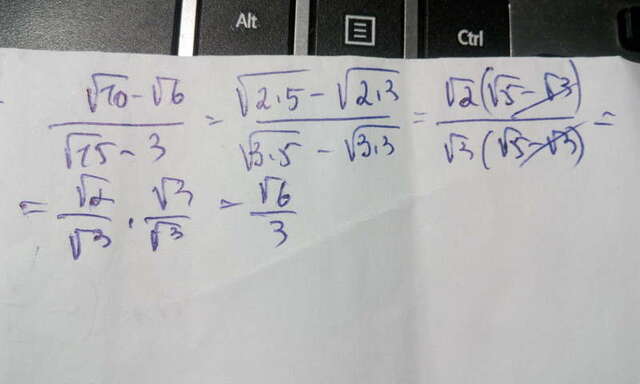 Alt
Ctrl
(√10 - √6)/(√15 - 3) = (√2·5 - √2·3)/(√3·5 - √3·3) = (√2(√5-√3))/(√3(√5-√3)) =
= √2/√3 · √3/√3 = √6/3